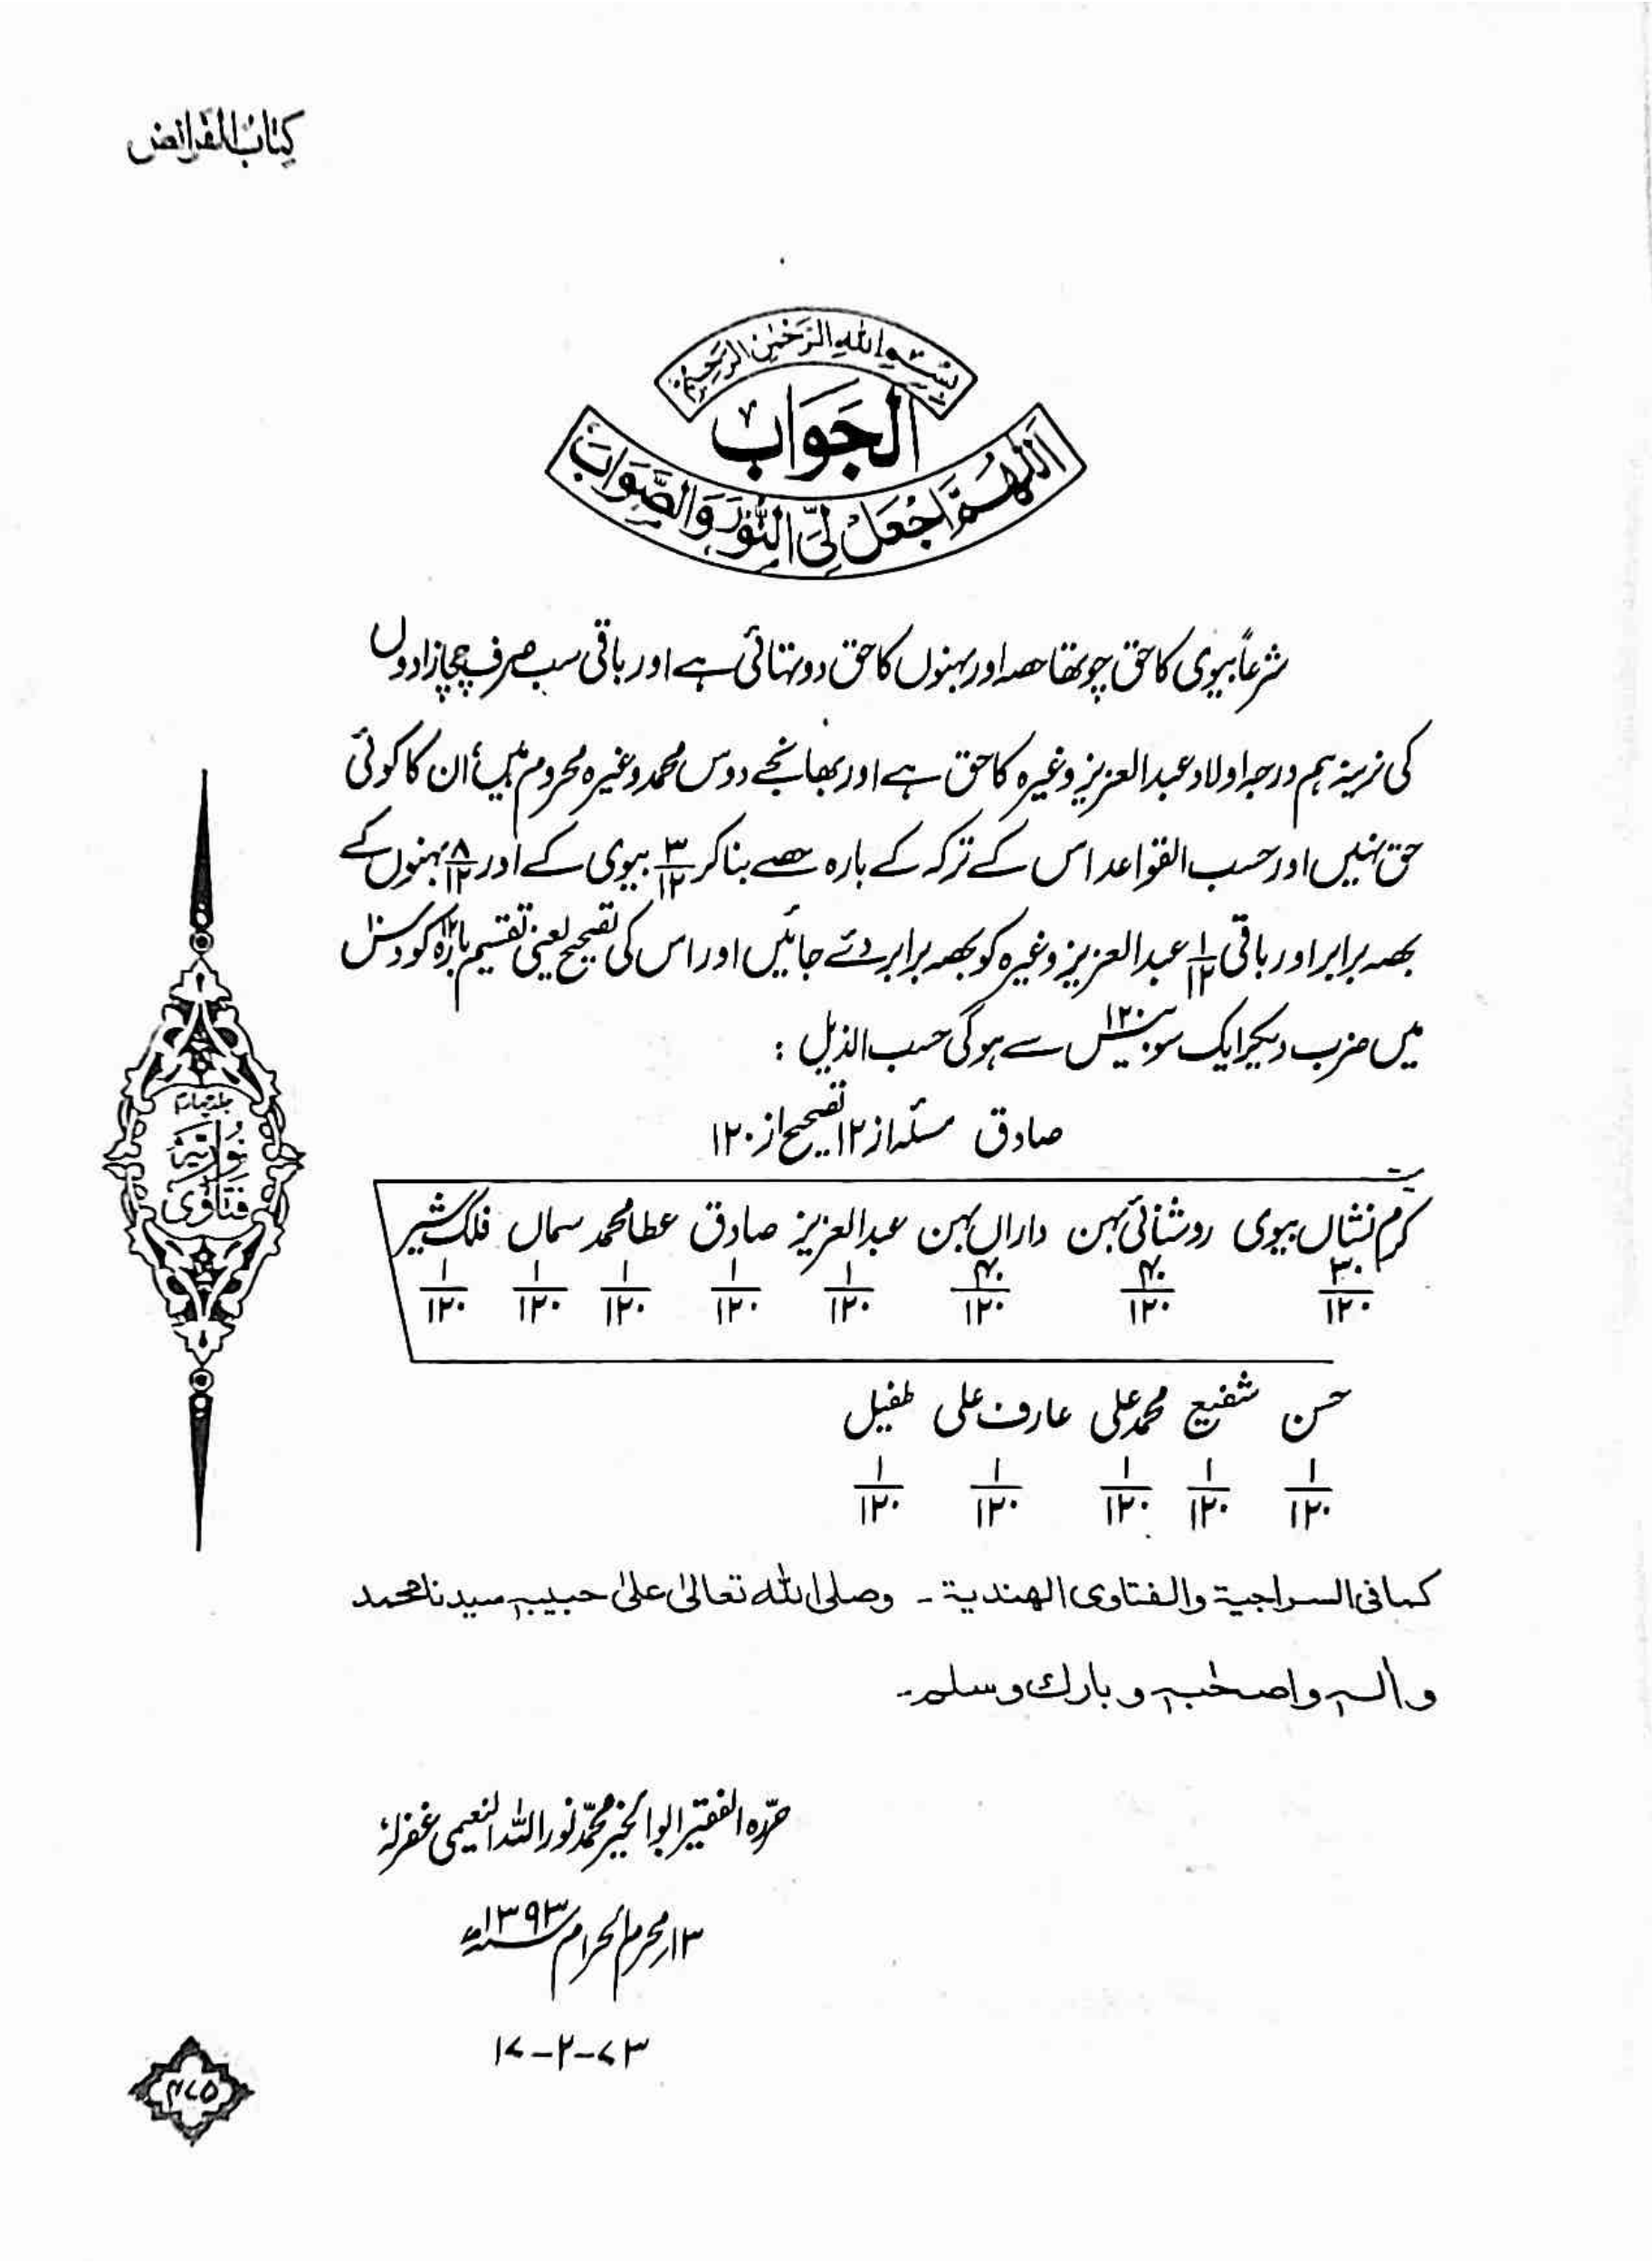 کتاب الفرائض
بِسْمِ اللهِ الرَّحْمٰنِ الرَّحِيْمِ
الجَوَابُ
اَللّٰهُمَّ اجْعَلْ لِّيَ النُّوْرَ وَالصَّوَابَ
شرعاً بیوی کا حق چوتھا حصہ اور بہنوں کا حق دو تہائی ہے اور باقی سب صرف چچازادوں
کی نرینہ ہم درجہ اولاد عبدالعزیز وغیرہ کا حق ہے اور بھانجے دوس محمد وغیرہ محروم ہیں، ان کا کوئی
حق نہیں اور حسب القواعد اس کے ترکہ کے بارہ حصے بنا کر ۳/۱۲ بیوی کے اور ۸/۱۲ بہنوں کے
بحصہ برابر اور باقی ۱/۱۲ عبدالعزیز وغیرہ کو بحصہ برابر دئے جائیں اور اس کی تصحیح یعنی تقسیم بارہ ۱۲ کو دس ۱۰
میں ضرب دیکر ایک سو بیس ۱۲۰ سے ہوگی حسب الذیل :
صادق مسئلہ از ۱۲ تصحیح از ۱۲۰
کرم نشاں بیوی روشنائی بہن داراں بہن عبدالعزیز صادق عطا محمد سماں فلک شیر
۳۰/۱۲۰ ۴۰/۱۲۰ ۴۰/۱۲۰ ۱/۱۲۰ ۱/۱۲۰ ۱/۱۲۰ ۱/۱۲۰ ۱/۱۲۰
حسن شفیع محمد علی عارف علی طفیل
۱/۱۲۰ ۱/۱۲۰ ۱/۱۲۰ ۱/۱۲۰ ۱/۱۲۰
كما فى السراجية والفتاوى الهندية ۔ وصلى الله تعالىٰ علىٰ حبيبه سيدنا محمد
و اٰله و اصحٰبه و بارك وسلم۔
حرّرہ الفقیر ابوالخیر محمّد نور اللہ النعیمی غفرلہٗ
۱۳ محرم الحرام ۱۳۹۳ھ
۱۷-۲-۷۳
جلد چہارم
نوریہ
فتاوٰی
۴۷۵